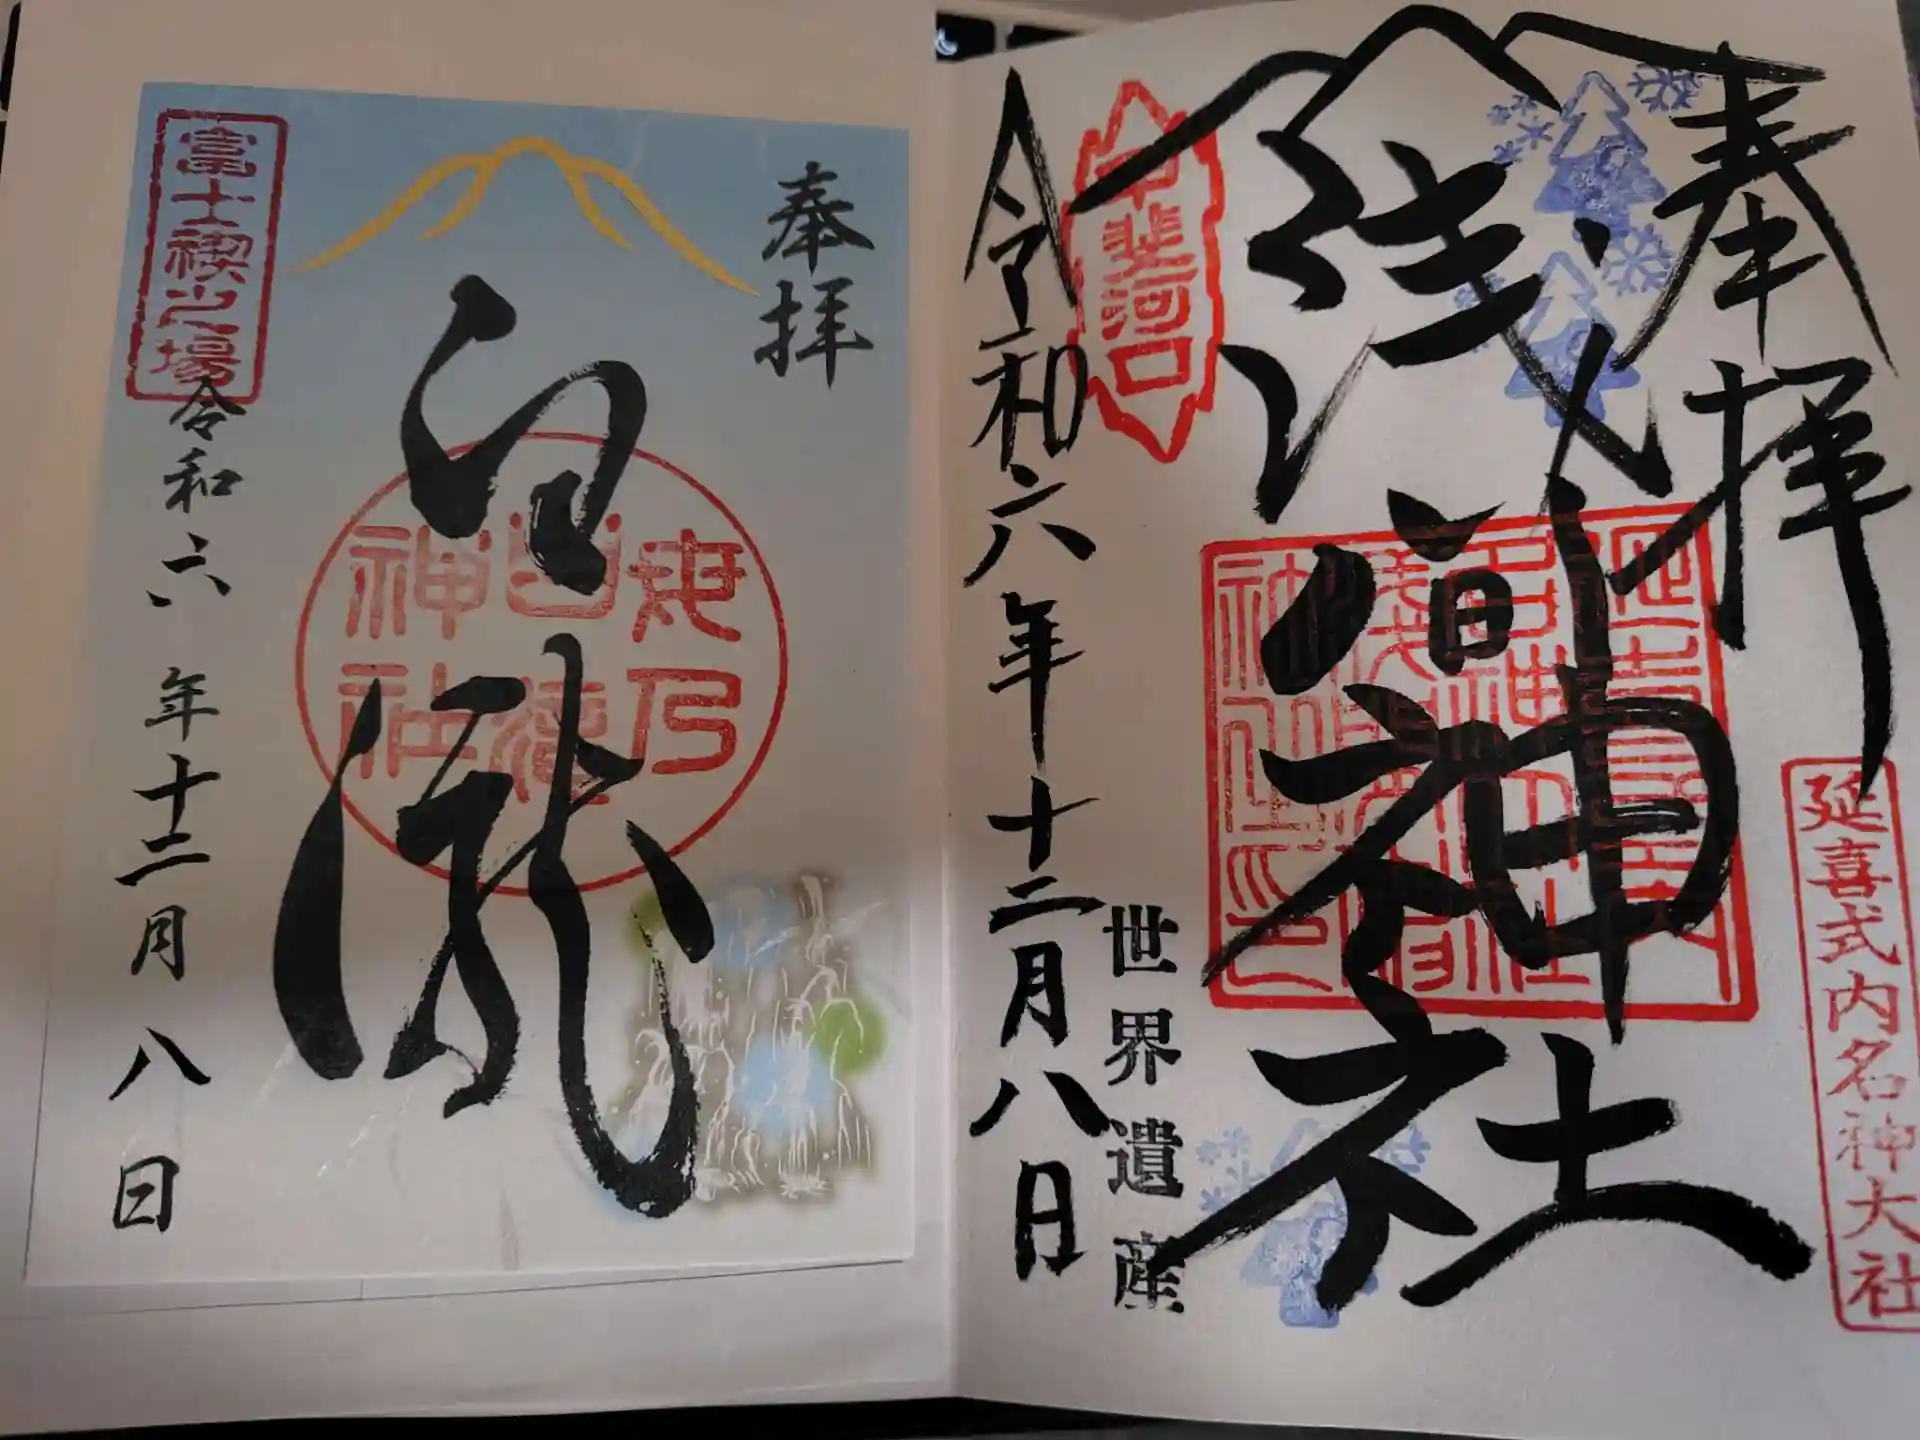 奉拝
浅間神社
延喜式内名神大社
甲斐河口
世界遺産
令和六年十二月八日
奉拝
白瀧
母乃
白滝
神社
富士禊之場
令和六年十二月八日